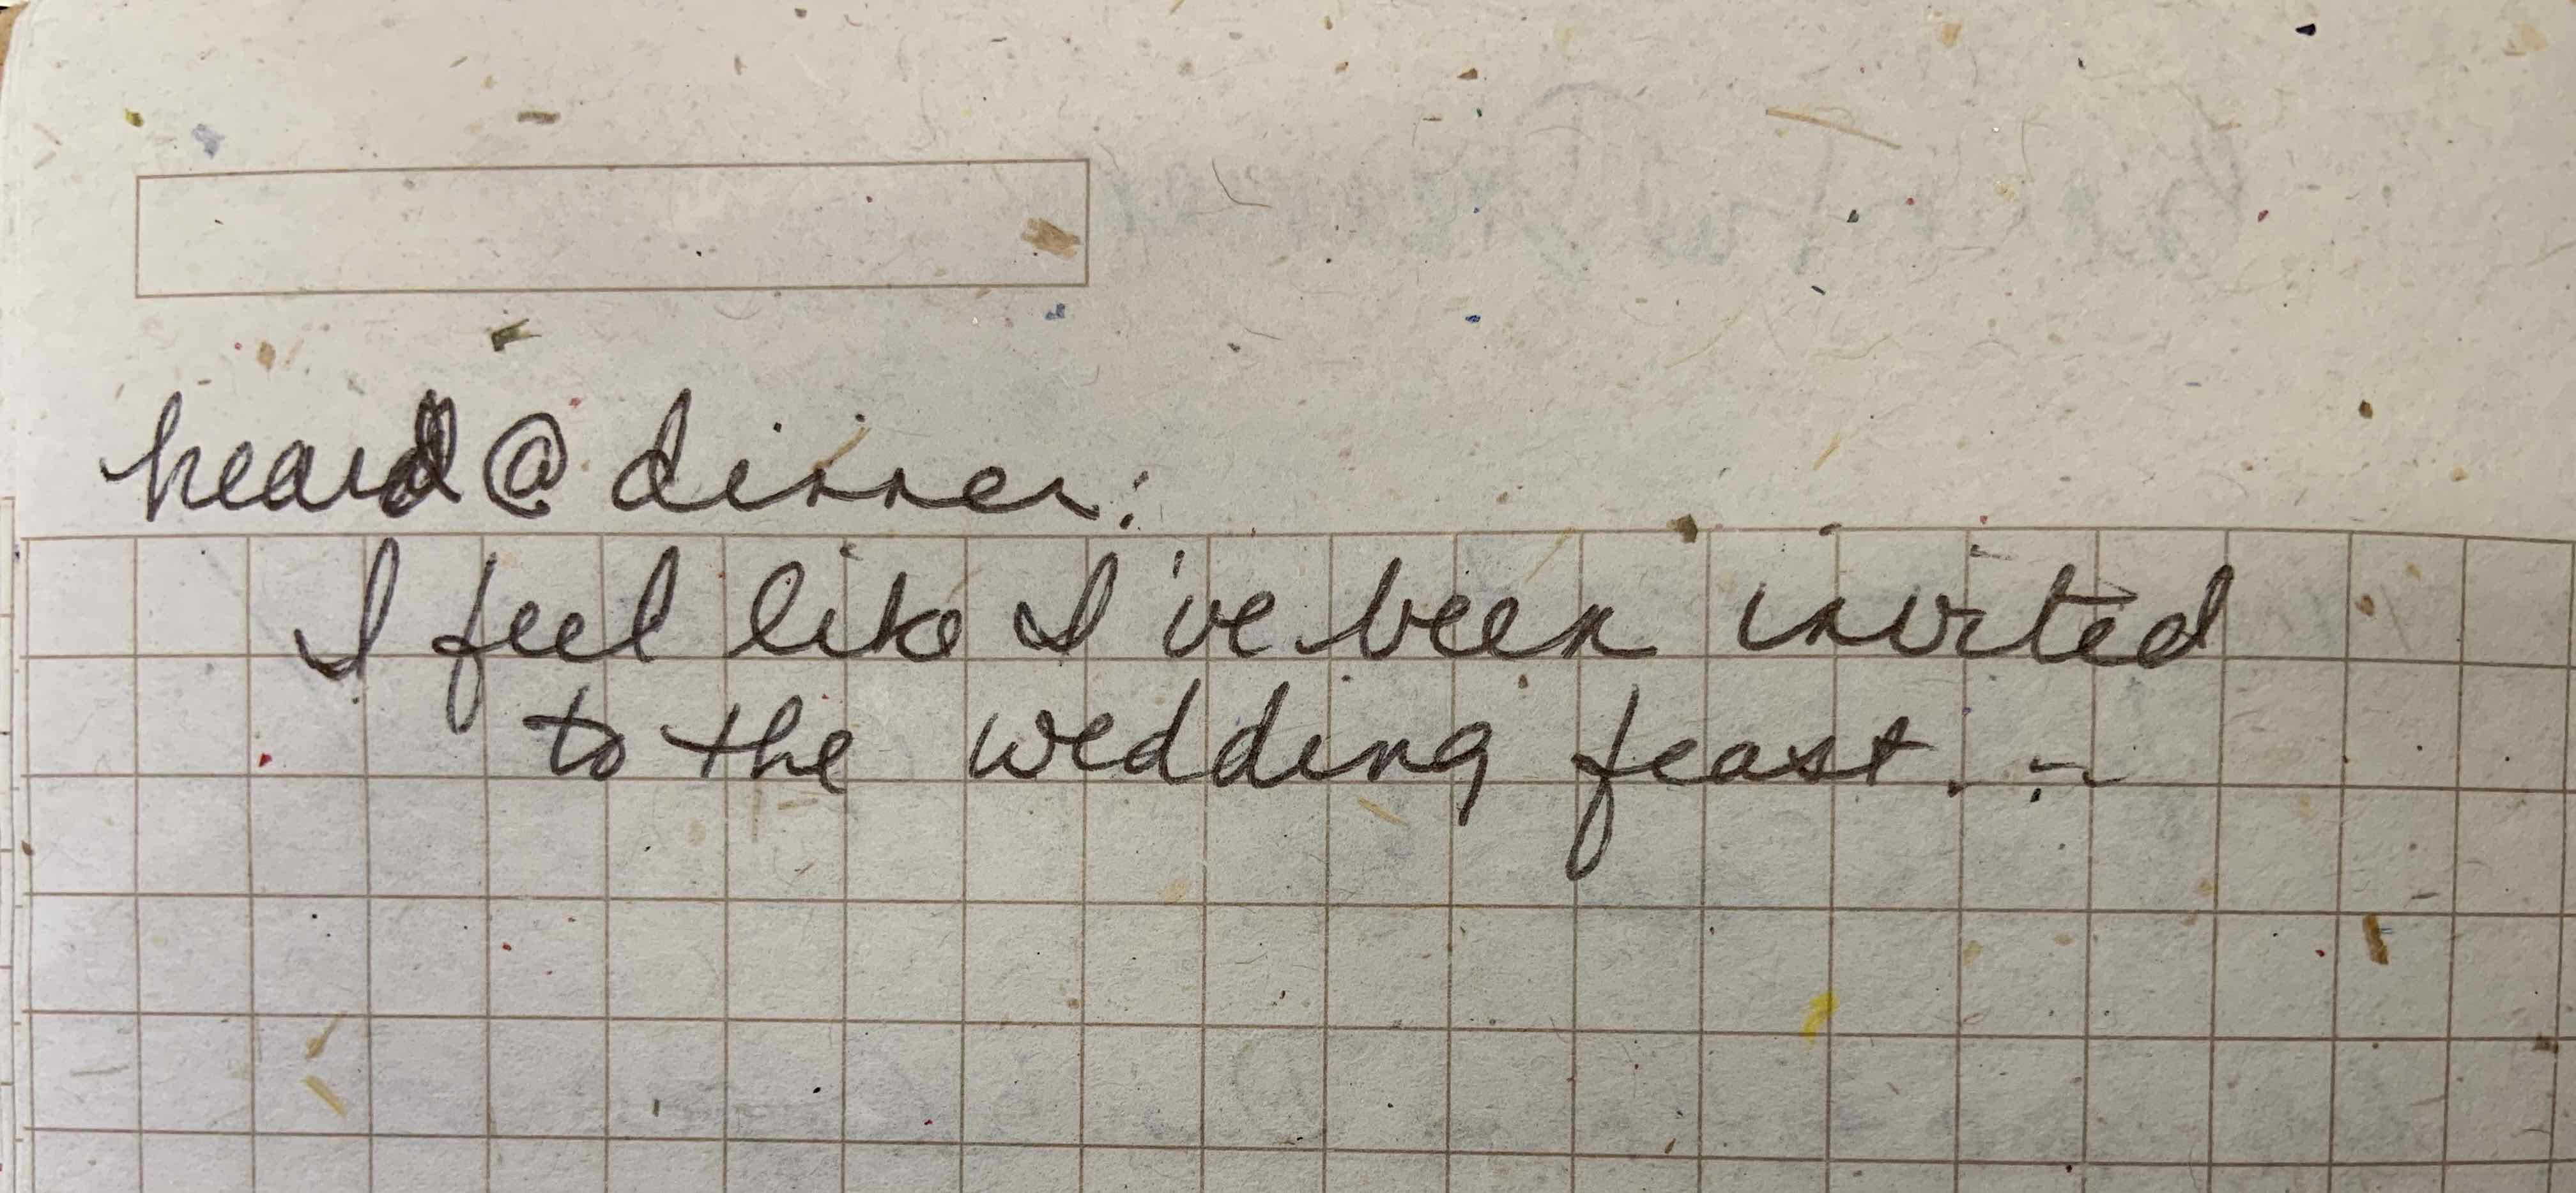 heard @ dinner:
I feel like I've been invited
to the wedding feast. :~